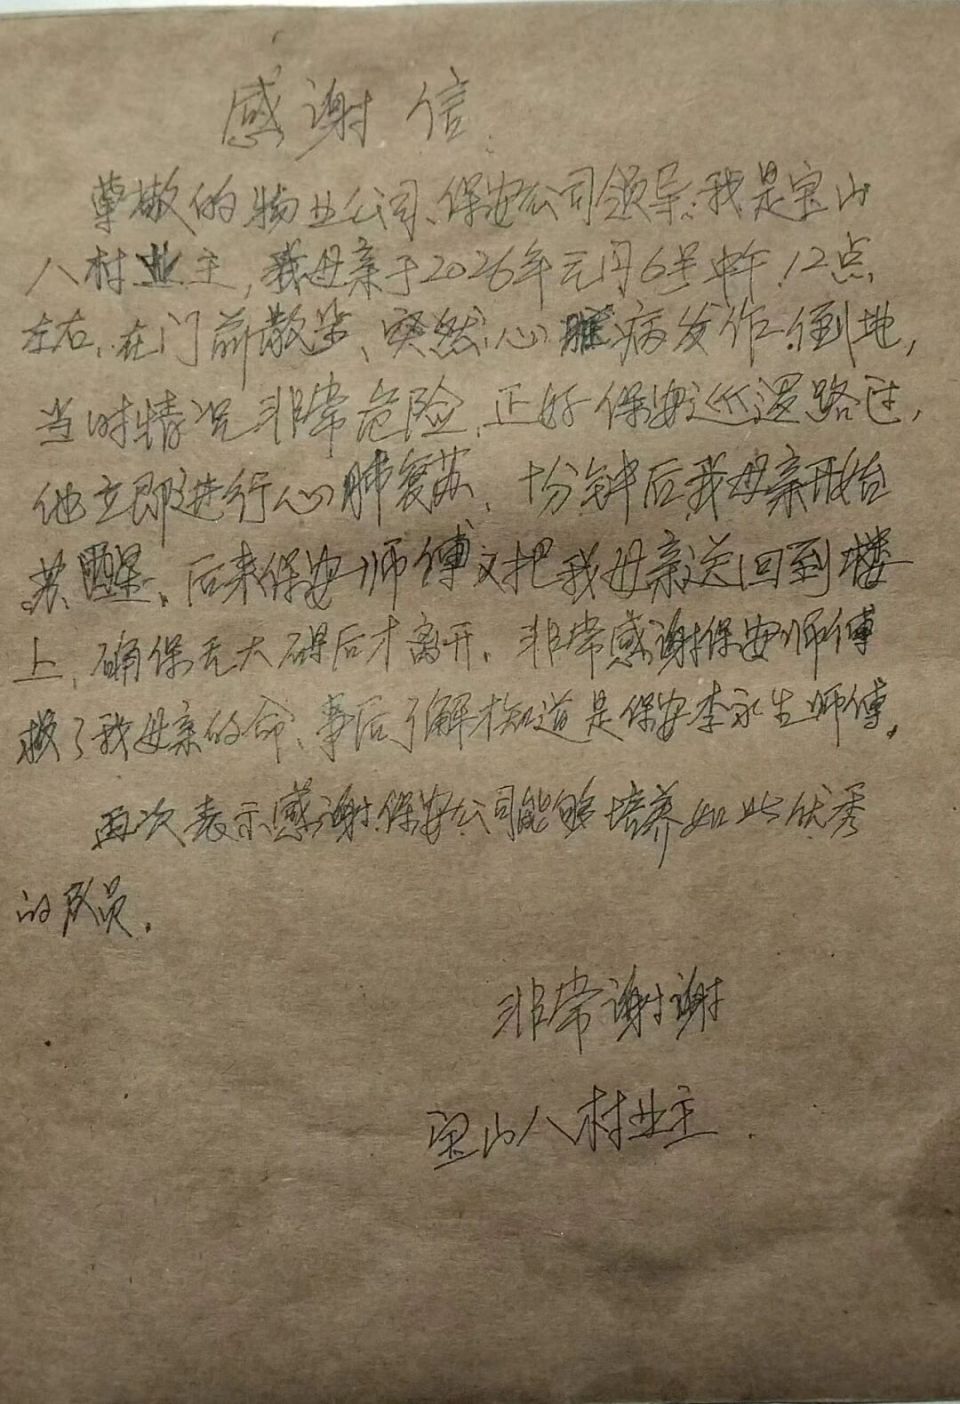 感谢信
尊敬的物业公司、保安公司领导:我是宝山
八村业主,我母亲于2026年元月6号中午12点
左右,在门前散步、突然心脏病发作倒地,
当时情况非常危险,正好保安巡逻路过,
他立即进行心肺复苏、十分钟后我母亲开始
苏醒、后来保安师傅又把我母亲送回到楼
上,确保无大碍后才离开。非常感谢保安师傅
救了我母亲的命、事后了解才知道是保安李永生师傅。
再次表示感谢保安公司能够培养如此优秀
的队员。
非常谢谢
宝山八村业主